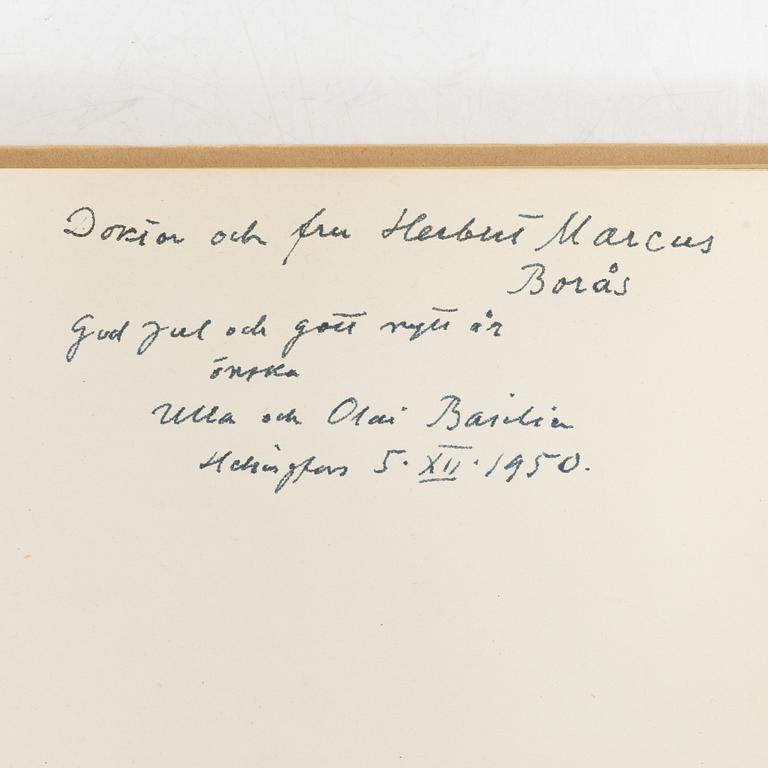 Doktor och fru Herbert Marcus
Borås
God Jul och gott nytt år
önska
Ulla och Olai Basilier
Helsingfors 5. XII. 1950.